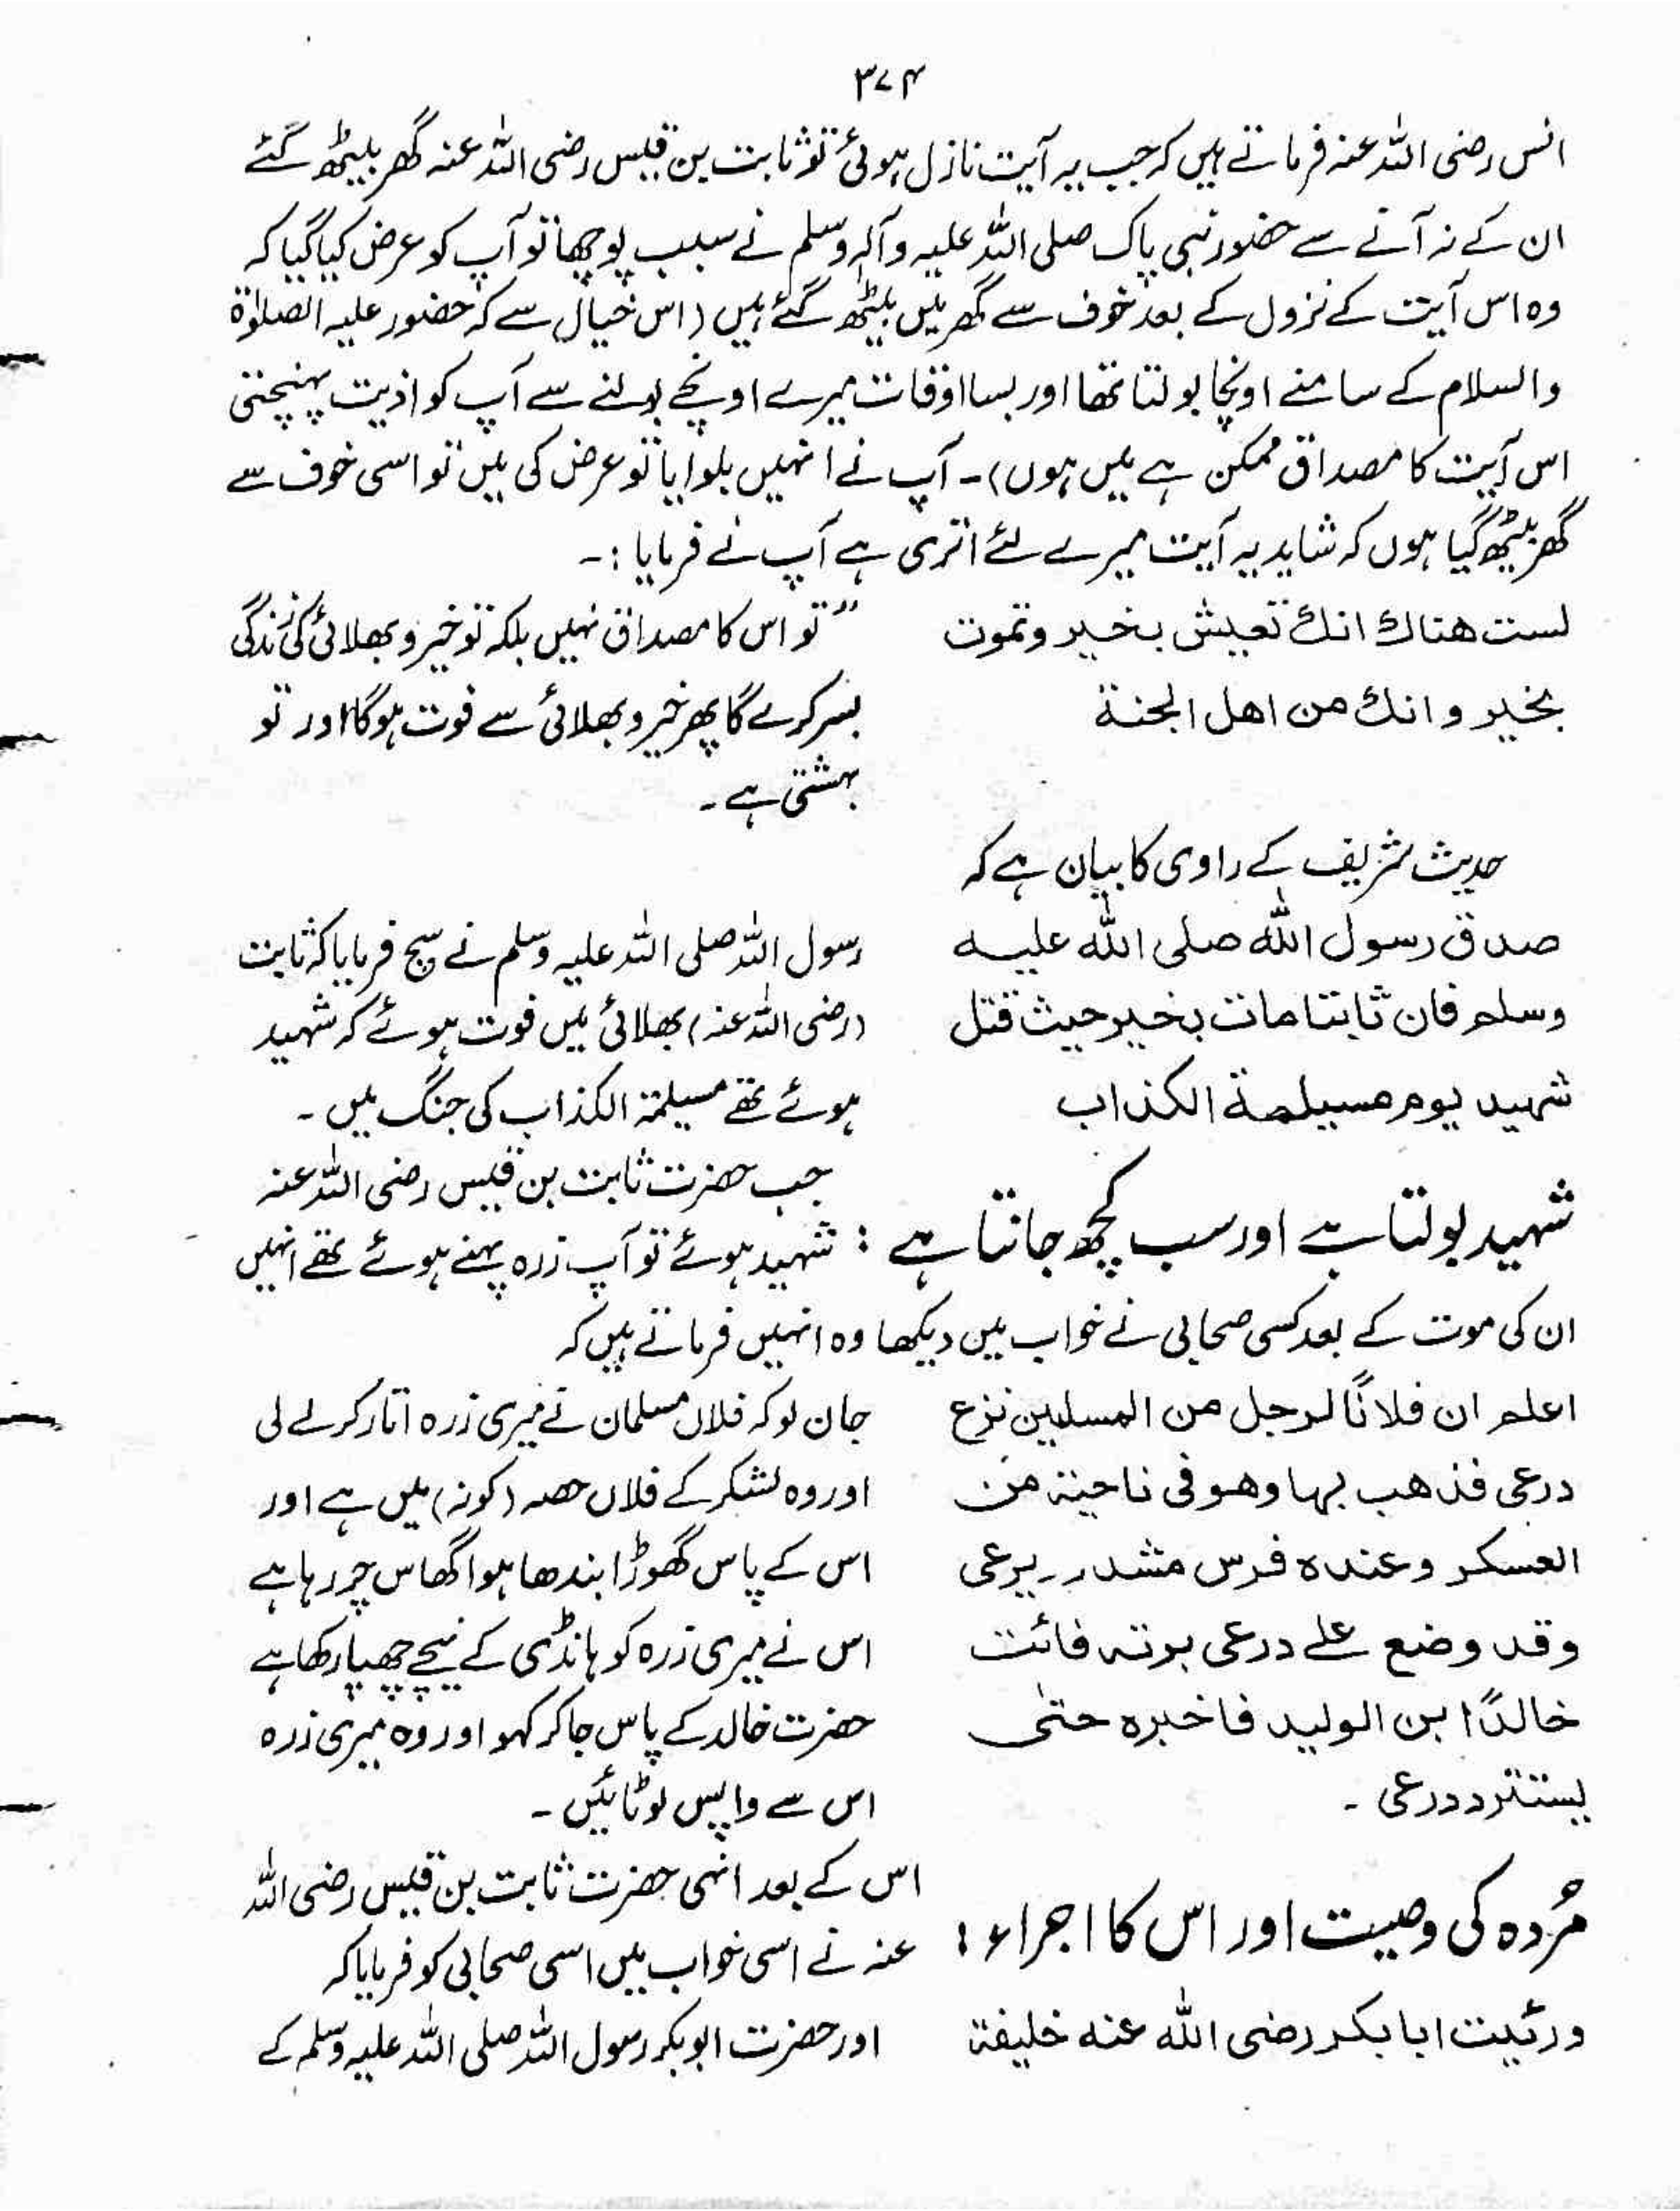 ۳۷۴
انس رضی اللہ عنہ فرماتے ہیں کہ جب یہ آیت نازل ہوئی تو ثابت بن قیس رضی اللہ عنہ گھر بیٹھ گئے
ان کے نہ آنے سے حضور نبی پاک صلی اللہ علیہ وآلہ وسلم نے سبب پوچھا تو آپ کو عرض کیا گیا کہ
وہ اس آیت کے نزول کے بعد خوف سے گھر میں بیٹھ گئے ہیں (اس خیال سے کہ حضور علیہ الصلوٰۃ
والسلام کے سامنے اونچا بولتا تھا اور بسا اوقات میرے اونچے بولنے سے آپ کو اذیت پہنچتی
اس آیت کا مصداق ممکن ہے میں ہوں)۔ آپ نے انہیں بلوایا تو عرض کی میں تو اسی خوف سے
گھر بیٹھ گیا ہوں کہ شاید یہ آیت میرے لئے اتری ہے آپ نے فرمایا :۔
لست هناك انك تعیش بخیر وتموت
بخیر وانك من اهل الجنة
"تو اس کا مصداق نہیں بلکہ تو خیر و بھلائی کی زندگی
بسر کرے گا پھر خیر و بھلائی سے فوت ہوگا اور تو
بہشتی ہے۔
حدیث شریف کے راوی کا بیان ہے کہ
صدق رسول الله صلی الله علیه
وسلم فان ثابتا مات بخیر حیث قتل
شهید یوم مسیلمة الکذاب
رسول اللہ صلی اللہ علیہ وسلم نے سچ فرمایا کہ ثابت
(رضی اللہ عنہ) بھلائی میں فوت ہوئے کہ شہید
ہوئے تھے مسیلمۃ الکذاب کی جنگ میں۔
شہید بولتا ہے اور سب کچھ جانتا ہے :
جب حضرت ثابت بن قیس رضی اللہ عنہ
شہید ہوئے تو آپ زرہ پہنے ہوئے تھے انہیں
ان کی موت کے بعد کسی صحابی نے خواب میں دیکھا وہ انہیں فرماتے ہیں کہ
اعلم ان فلانًا لرجل من المسلمین نزع
درعی فذهب بها وهو فی ناحیة من
العسکر وعنده فرس یرعی
وقد وضع علے درعی برته فائت
خالدًا ابن الولید فاخبره حتیٰ
یستترد درعی ۔
جان لو کہ فلاں مسلمان نے میری زرہ اتار کر لے لی
اور وہ لشکر کے فلاں حصہ (کونہ) میں ہے اور
اس کے پاس گھوڑا بندھا ہوا گھاس چر رہا ہے
اس نے میری زرہ کو ہانڈی کے نیچے چھپا رکھا ہے
حضرت خالد کے پاس جا کر کہو اور وہ میری زرہ
اس سے واپس لوٹائیں۔
مُردہ کی وصیت اور اس کا اجراء :
اس کے بعد انہی حضرت ثابت بن قیس رضی اللہ
عنہ نے اسی خواب میں اسی صحابی کو فرمایا کہ
ورئیت ابا بکر رضی الله عنه خلیفة
اور حضرت ابوبکر رسول اللہ صلی اللہ علیہ وسلم کے